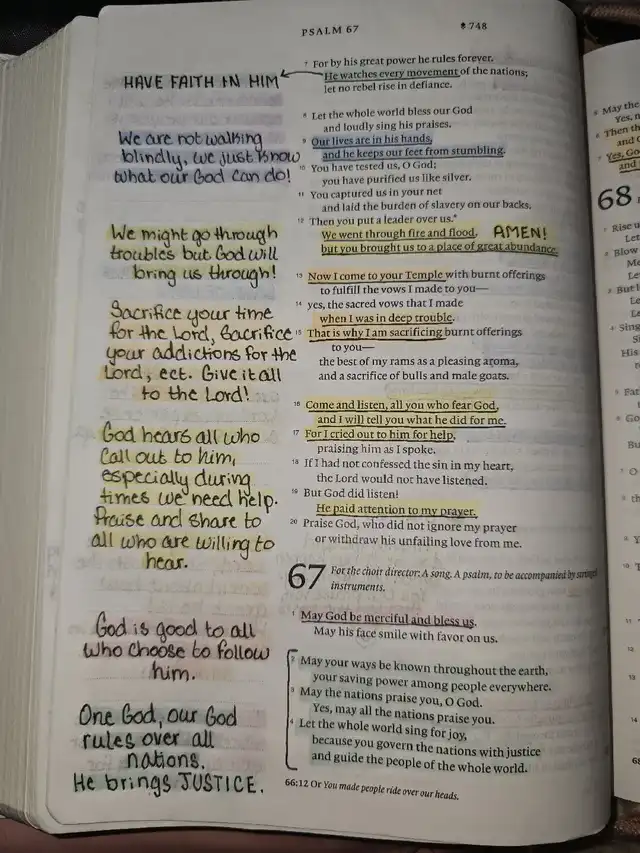 PSALM 67
748
HAVE FAITH IN HIM
We are not walking
blindly, we just know
what our God can do!
We might go through
troubles but God will
bring us through!
Sacrifice your time
for the Lord, Sacrifice
your addictions for the
Lord, ect. Give it all
to the Lord!
God hears all who
Call out to him,
especially during
times we need help.
Praise and share to
all who are willing to
hear.
God is good to all
who choose to follow
him.
One God, our God
rules over all
nations.
He brings JUSTICE.
7 For by his great power he rules forever.
He watches every movement of the nations;
let no rebel rise in defiance.
8 Let the whole world bless our God
and loudly sing his praises.
9 Our lives are in his hands,
and he keeps our feet from stumbling.
10 You have tested us, O God;
you have purified us like silver.
11 You captured us in your net
and laid the burden of slavery on our backs.
12 Then you put a leader over us.*
We went through fire and flood, AMEN!
but you brought us to a place of great abundance.
13 Now I come to your Temple with burnt offerings
to fulfill the vows I made to you—
14 yes, the sacred vows that I made
when I was in deep trouble.
15 That is why I am sacrificing burnt offerings
to you—
the best of my rams as a pleasing aroma,
and a sacrifice of bulls and male goats.
16 Come and listen, all you who fear God,
and I will tell you what he did for me.
17 For I cried out to him for help,
praising him as I spoke.
18 If I had not confessed the sin in my heart,
the Lord would not have listened.
19 But God did listen!
He paid attention to my prayer.
20 Praise God, who did not ignore my prayer
or withdraw his unfailing love from me.
67 For the choir director: A song. A psalm, to be accompanied by stringed
instruments.
1 May God be merciful and bless us.
May his face smile with favor on us.
2 May your ways be known throughout the earth,
your saving power among people everywhere.
3 May the nations praise you, O God.
Yes, may all the nations praise you.
4 Let the whole world sing for joy,
because you govern the nations with justice
and guide the people of the whole world.
66:12 Or You made people ride over our heads.
May the
Then th
68